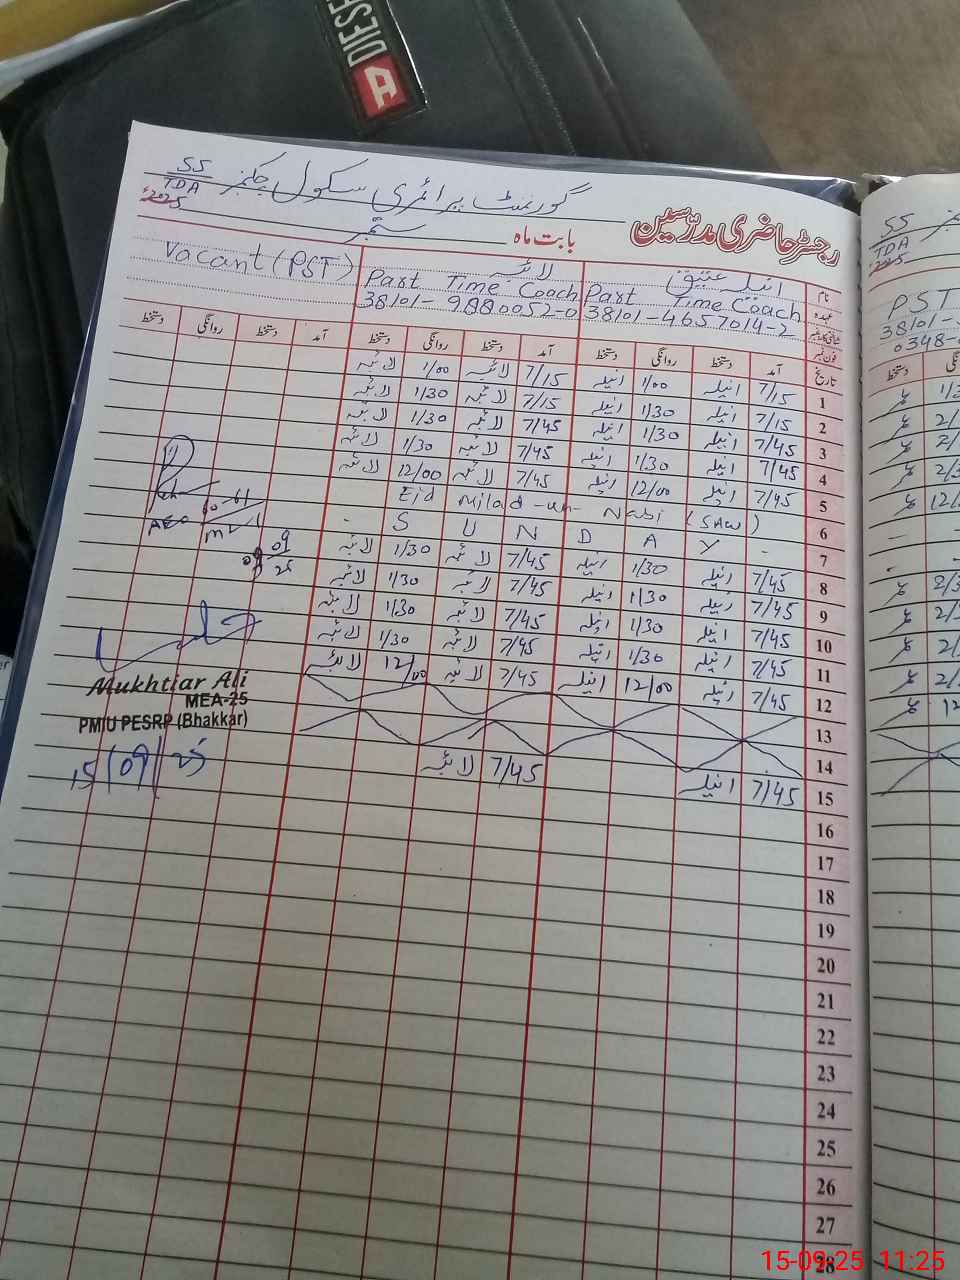 DIESEL
گورنمنٹ پرائمری سکول چکنمبر 55/TDA
رجسٹر حاضری مدرسین بابت ماہ ستمبر 2025ء
نام انیلہ عتیق لائبہ Vacant (PST)
عہدہ Part Time Coach Part Time Coach
38101-4657014-2 38101-9880052-0
فون نمبر
تاریخ آمد دستخط روانگی دستخط آمد دستخط روانگی دستخط آمد دستخط روانگی دستخط
1 7/15 انیلہ 1/00 انیلہ 7/15 لائبہ 1/00 لائبہ
2 7/15 انیلہ 1/30 انیلہ 7/15 لائبہ 1/30 لائبہ
3 7/45 انیلہ 1/30 انیلہ 7/45 لائبہ 1/30 لائبہ
4 7/45 انیلہ 1/30 انیلہ 7/45 لائبہ 1/30 لائبہ
5 7/45 انیلہ 12/00 انیلہ 7/45 لائبہ 12/00 لائبہ
6 Eid Milad-un-Nabi (SAW)
7 - S U N D A Y -
8 7/45 انیلہ 1/30 انیلہ 7/45 لائبہ 1/30 لائبہ
9 7/45 انیلہ 1/30 انیلہ 7/45 لائبہ 1/30 لائبہ
10 7/45 انیلہ 1/30 انیلہ 7/45 لائبہ 1/30 لائبہ
11 7/45 انیلہ 1/30 انیلہ 7/45 لائبہ 1/30 لائبہ
12 7/45 انیلہ 12/00 انیلہ 7/45 لائبہ 12/00 لائبہ
13
14
15 7/45 انیلہ 7/45 لائبہ
16
17
18
19
20
21
22
23
24
25
26
27
28
AEO
09
25
Mukhtiar Ali
MEA-25
PMIU PESRP (Bhakkar)
15/09/25
55
TDA
2025
PST
38101-
0348-
دستخط
15-09-25 11:25